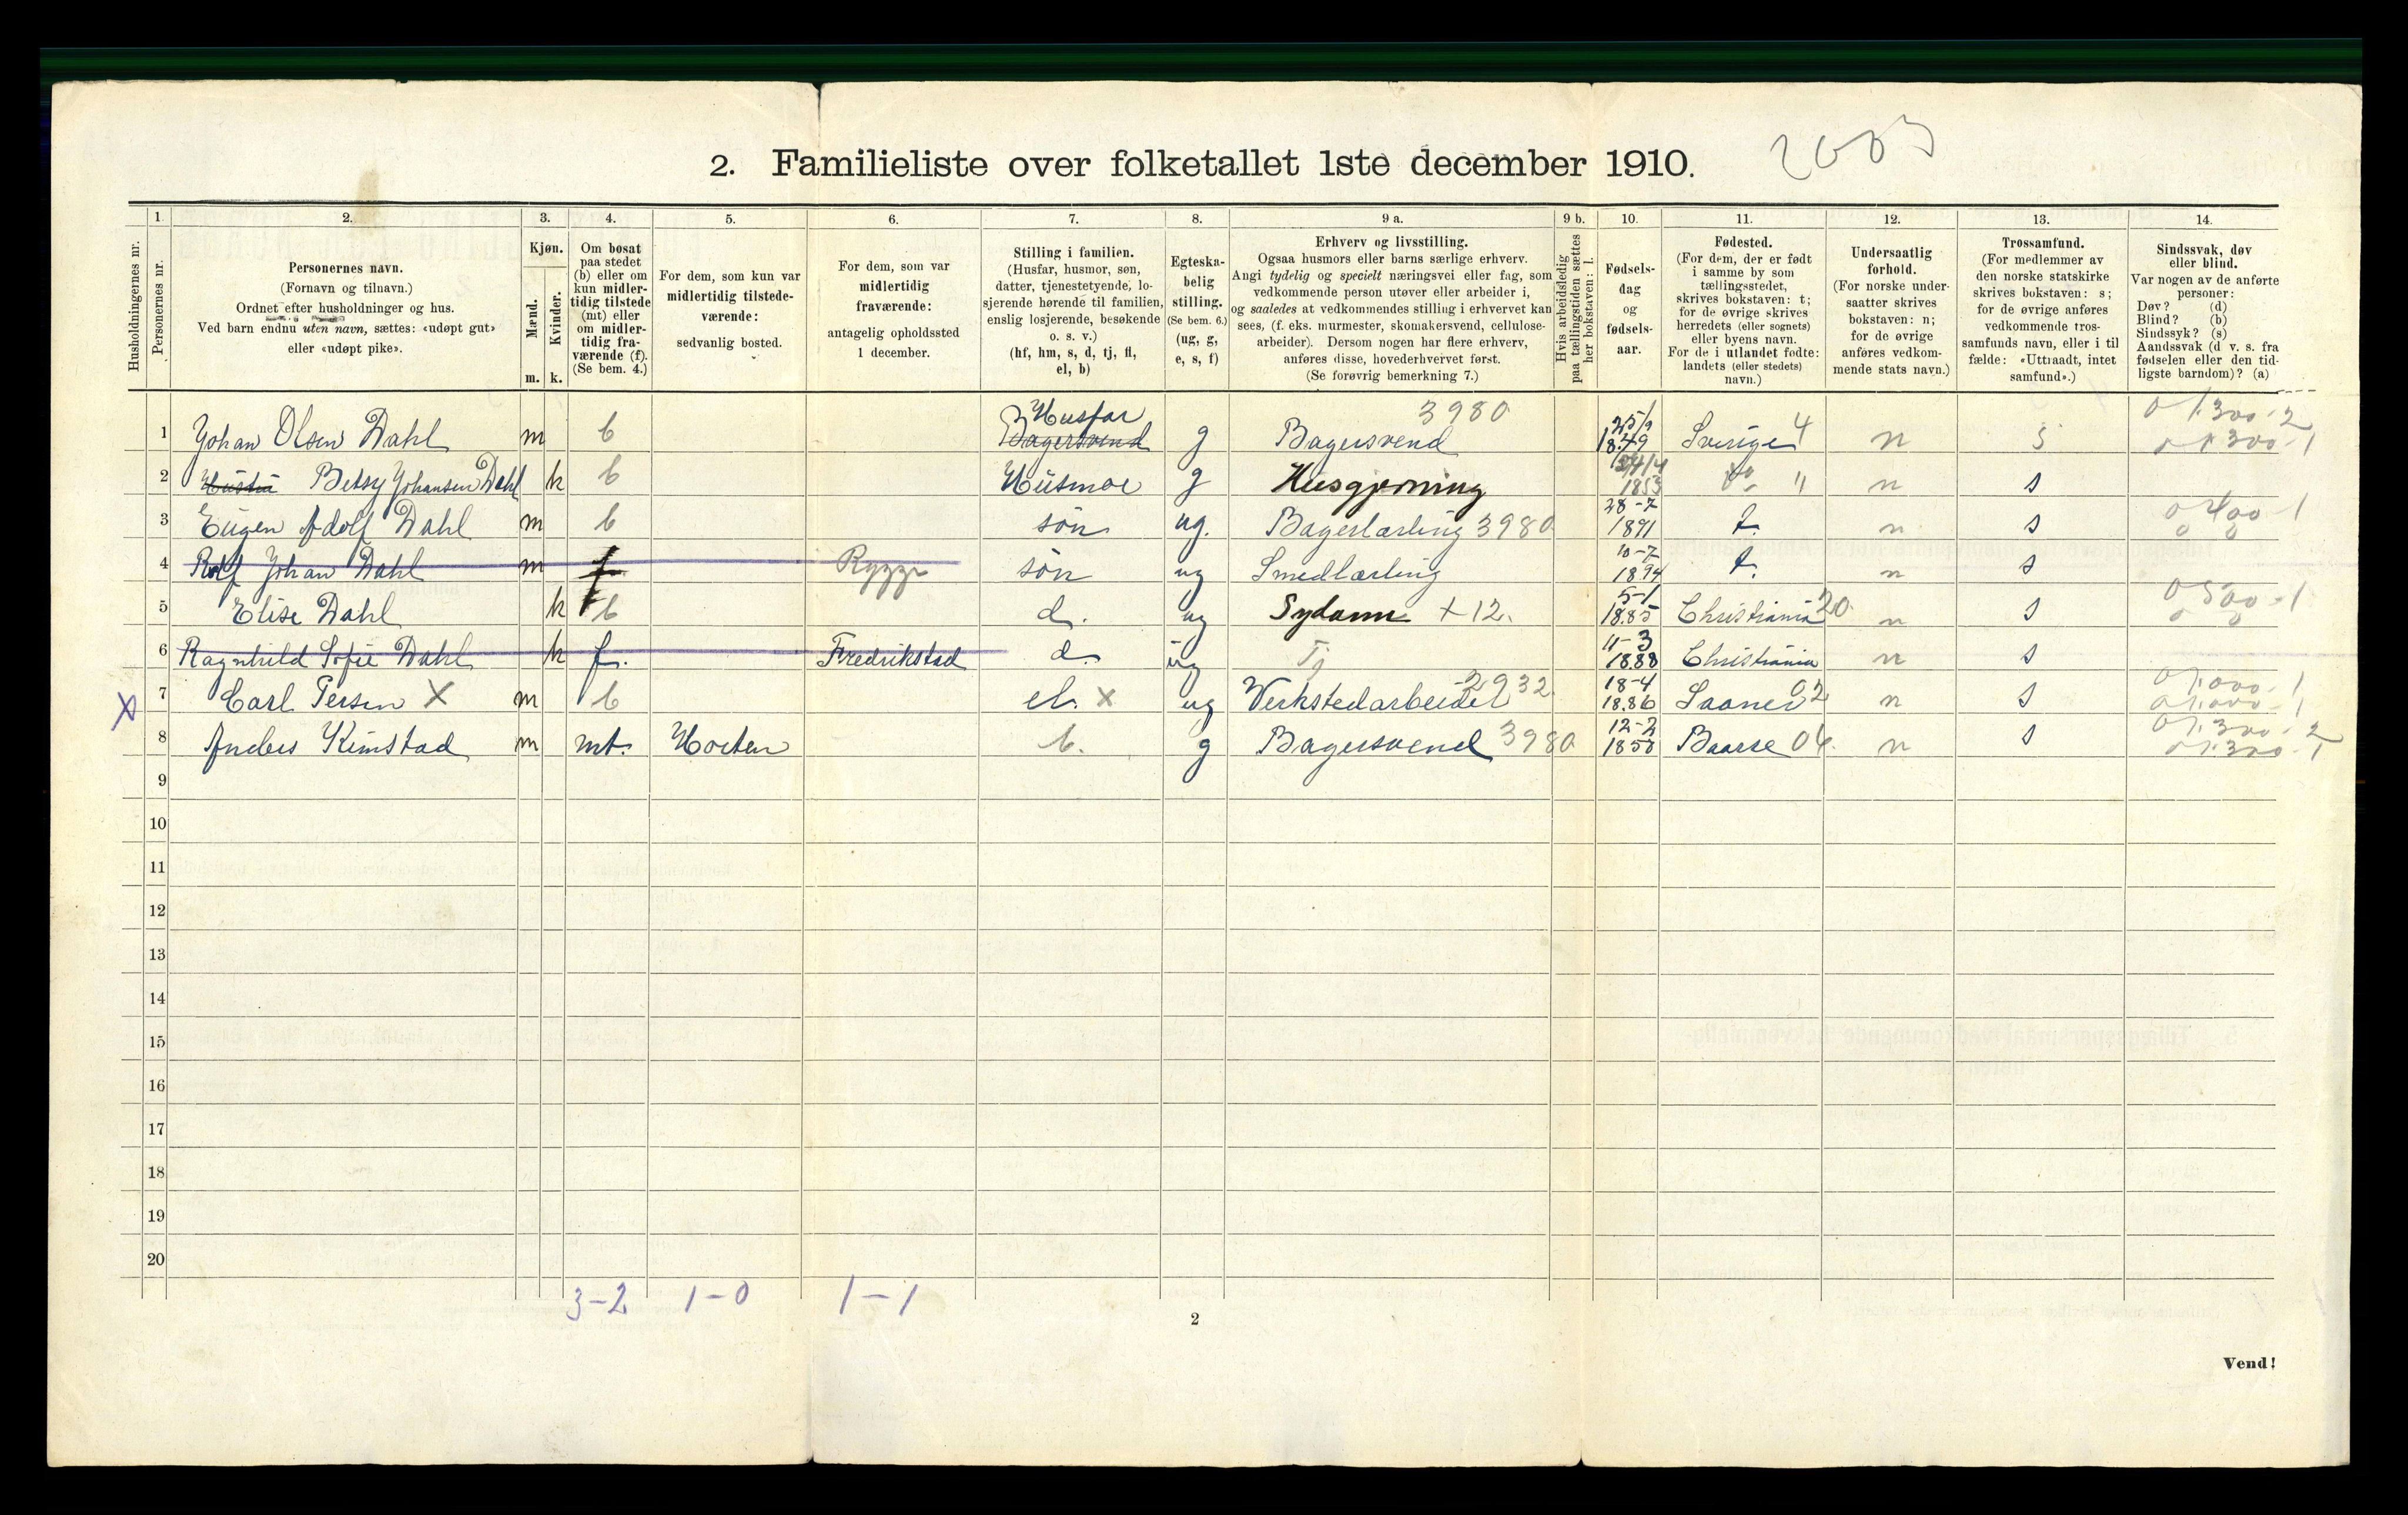 2. Familieliste over folketallet 1ste december 1910.
1. 2. 3. 4. 5. 6. 7. 8. 9 a. 9 b. 10. 11. 12. 13. 14.
Husholdningernes nr.
Personernes nr.
Personernes navn.
(Fornavn og tilnavn.)
Ordnet efter husholdninger og hus.
Ved barn endnu uten navn, sættes: «udøpt gut»
eller «udøpt pike».
Kjøn.
Mænd.
Kvinder.
m. k.
Om bosat
paa stedet
(b) eller om
kun midler-
tidig tilstede
(mt) eller
om midler-
tidig fra-
værende (f).
(Se bem. 4.)
For dem, som kun var
midlertidig tilstede-
værende:
sedvanlig bosted.
For dem, som var
midlertidig
fraværende:
antagelig opholdssted
1 december.
Stilling i familien.
(Husfar, husmor, søn,
datter, tjenestetyende, lo-
sjerende hørende til familien,
enslig losjerende, besøkende
o. s. v.)
(hf, hm, s, d, tj, fl,
el, b)
Egteska-
belig
stilling.
(Se bem. 6.)
(ug, g,
e, s, f)
Erhverv og livsstilling.
Ogsaa husmors eller barns særlige erhverv.
Angi tydelig og specielt næringsvei eller fag, som
vedkommende person utøver eller arbeider i,
og saaledes at vedkommendes stilling i erhvervet kan
sees, (f. eks. murmester, skomakersvend, cellulose-
arbeider). Dersom nogen har flere erhverv,
anføres disse, hovederhvervet først.
(Se forøvrig bemerkning 7.)
Hvis arbeidsledig
paa tællingstiden sættes
her bokstaven: l.
Fødsels-
dag
og
fødsels-
aar.
Fødested.
(For dem, der er født
i samme by som
tællingsstedet,
skrives bokstaven: t;
for de øvrige skrives
herredets (eller sognets)
eller byens navn.
For de i utlandet fødte:
landets (eller stedets)
navn.)
Undersaatlig
forhold.
(For norske under-
saatter skrives
bokstaven: n;
for de øvrige
anføres vedkom-
mende stats navn.)
Trossamfund.
(For medlemmer av
den norske statskirke
skrives bokstaven: s;
for de øvrige anføres
vedkommende tros-
samfunds navn, eller i til
fælde: «Uttraadt, intet
samfund».)
Sindssvak, døv
eller blind.
Var nogen av de anførte
personer:
Døv? (d)
Blind? (b)
Sindssyk? (s)
Aandssvak (d v. s. fra
fødselen eller den tid-
ligste barndom)? (a)
1 Johan Olsen Dahl m b Husfar Bagersvend g 3980 Bagersvend 25/9 1849 Sverige 4 n s 01.300-2 01.300-1
2 Hustru Betsy Johansen Dahl k b Husmor g Husgjerning 24/4 1853 do " n s
3 Eugen Adolf Dahl m b søn ug. Bagerlærling 3980 28-7 1891 t. n s 0400-1
4 Rolf Johan Dahl m f Rygge søn ug Smedlærling 10-7 1894 t. n s
5 Elise Dahl k b d. ug Sydame +12. 5-1 1885 Christiania 20 n s 0500-1
6 Ragnhild Sofie Dahl k f. Fredrikstad d. ug Tj 11-3 1888 Christiania n s
X 7 Carl Persen X m b el. x ug Verkstedarbeider 2932 18-4 1886 Saaner 02 n s 01.000-1 01.000-1
8 Anders Kimstad m mt. Horten b. g Bagersvend 3980 12-2 1850 Baarse 04. n s 01.300-2 01.300-1
9
10
11
12
13
14
15
16
17
18
19
20
3-2 1-0 1-1
2
Vend!